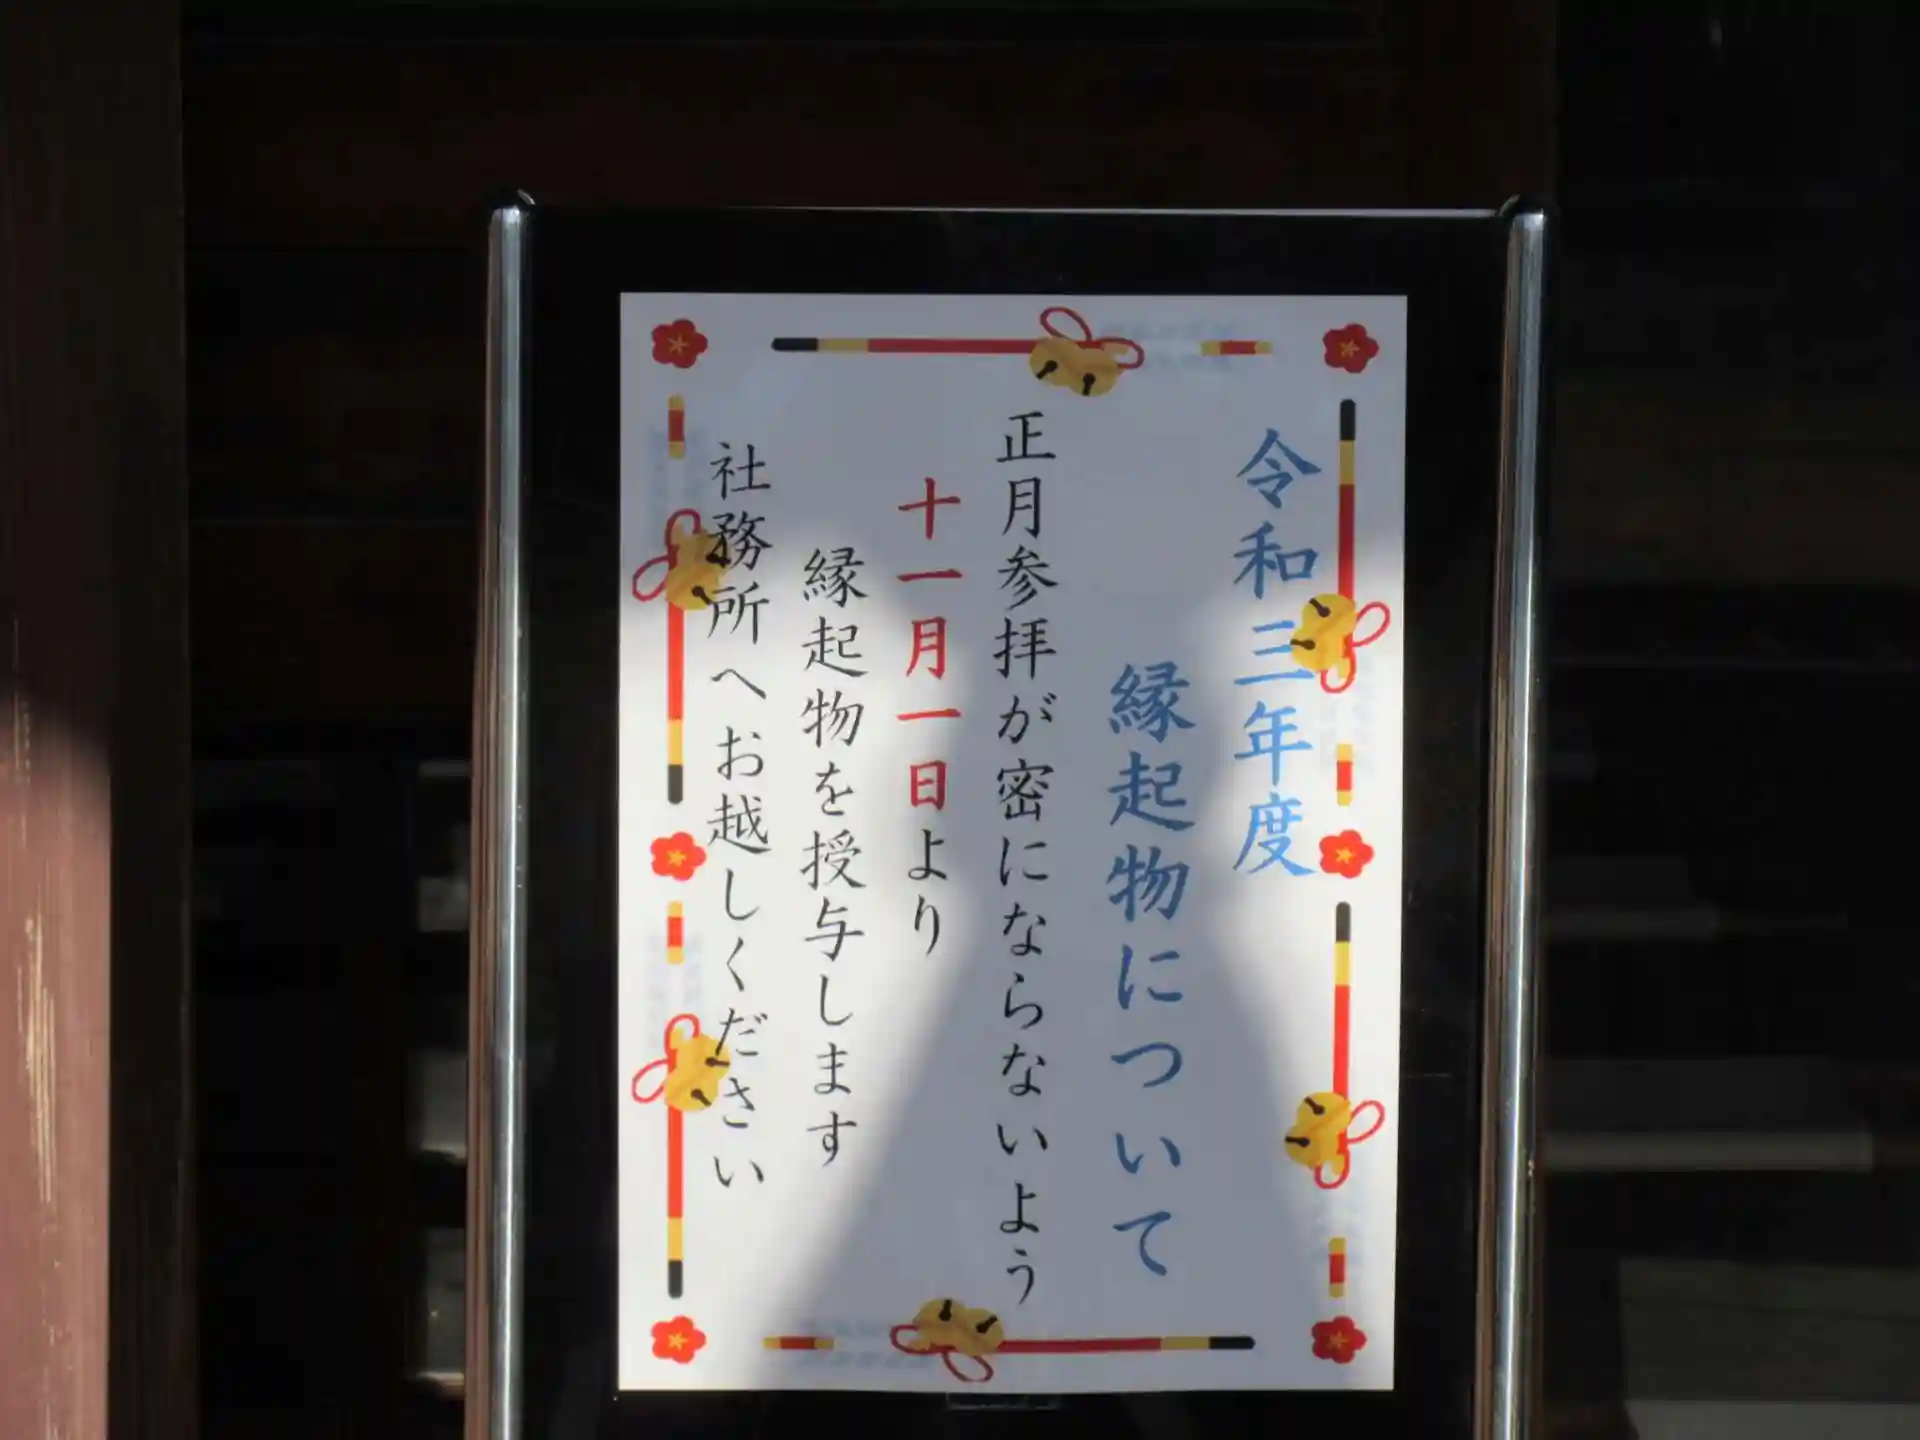 令和三年度
縁起物について
正月参拝が密にならないよう
十一月一日より
縁起物を授与します
社務所へお越しください